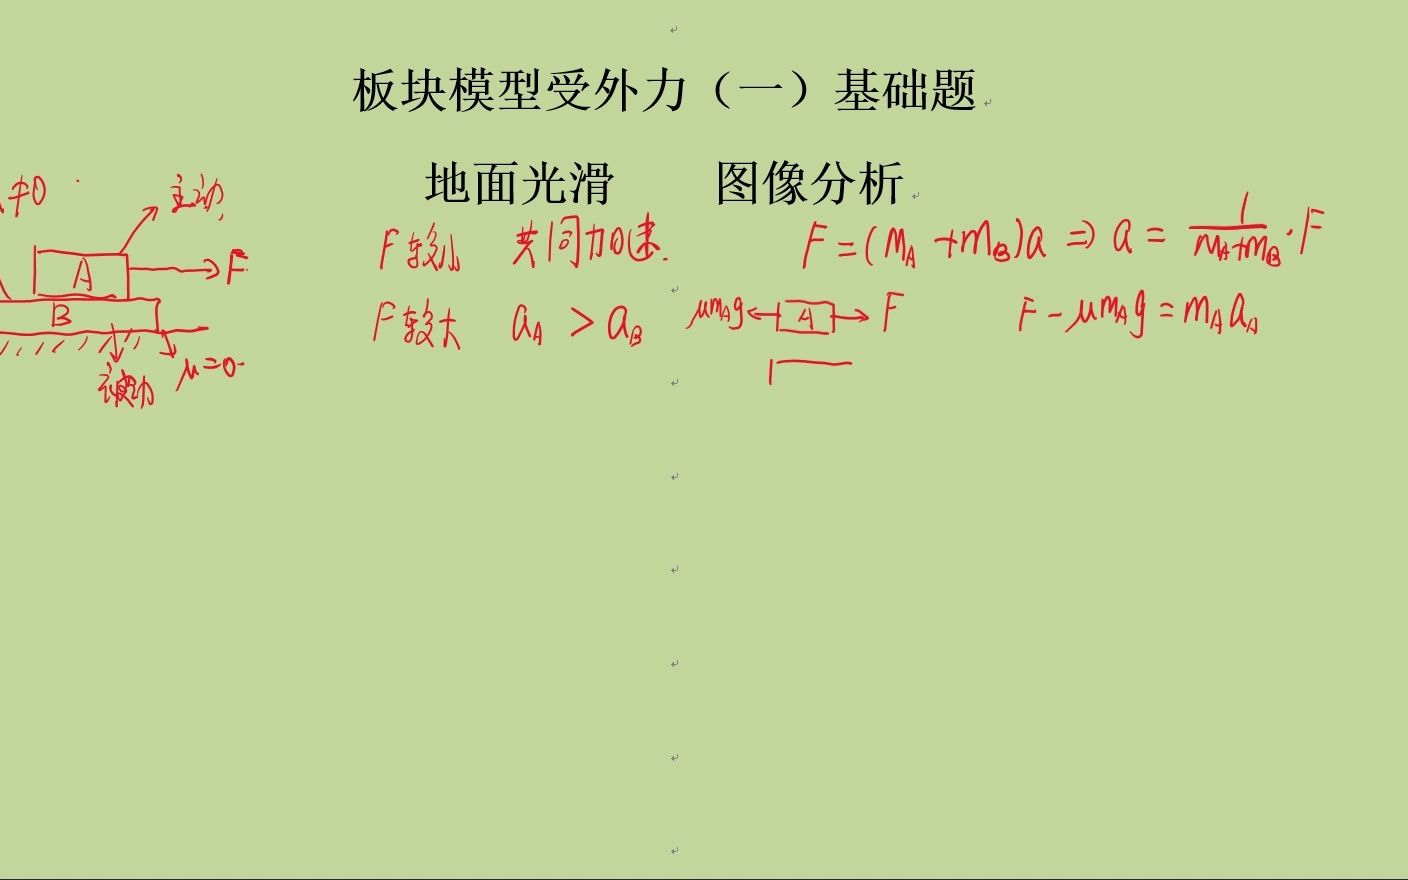 板块模型受外力（一）基础题
地面光滑 图像分析
≠0
主动
A
F
B
μ=0
被动
F较小 共同加速.
F=(mA+mB)a ⇒ a = 1/(mA+mB)·F
F较大 aA > aB
μmAg A F
F-μmAg=mAaA